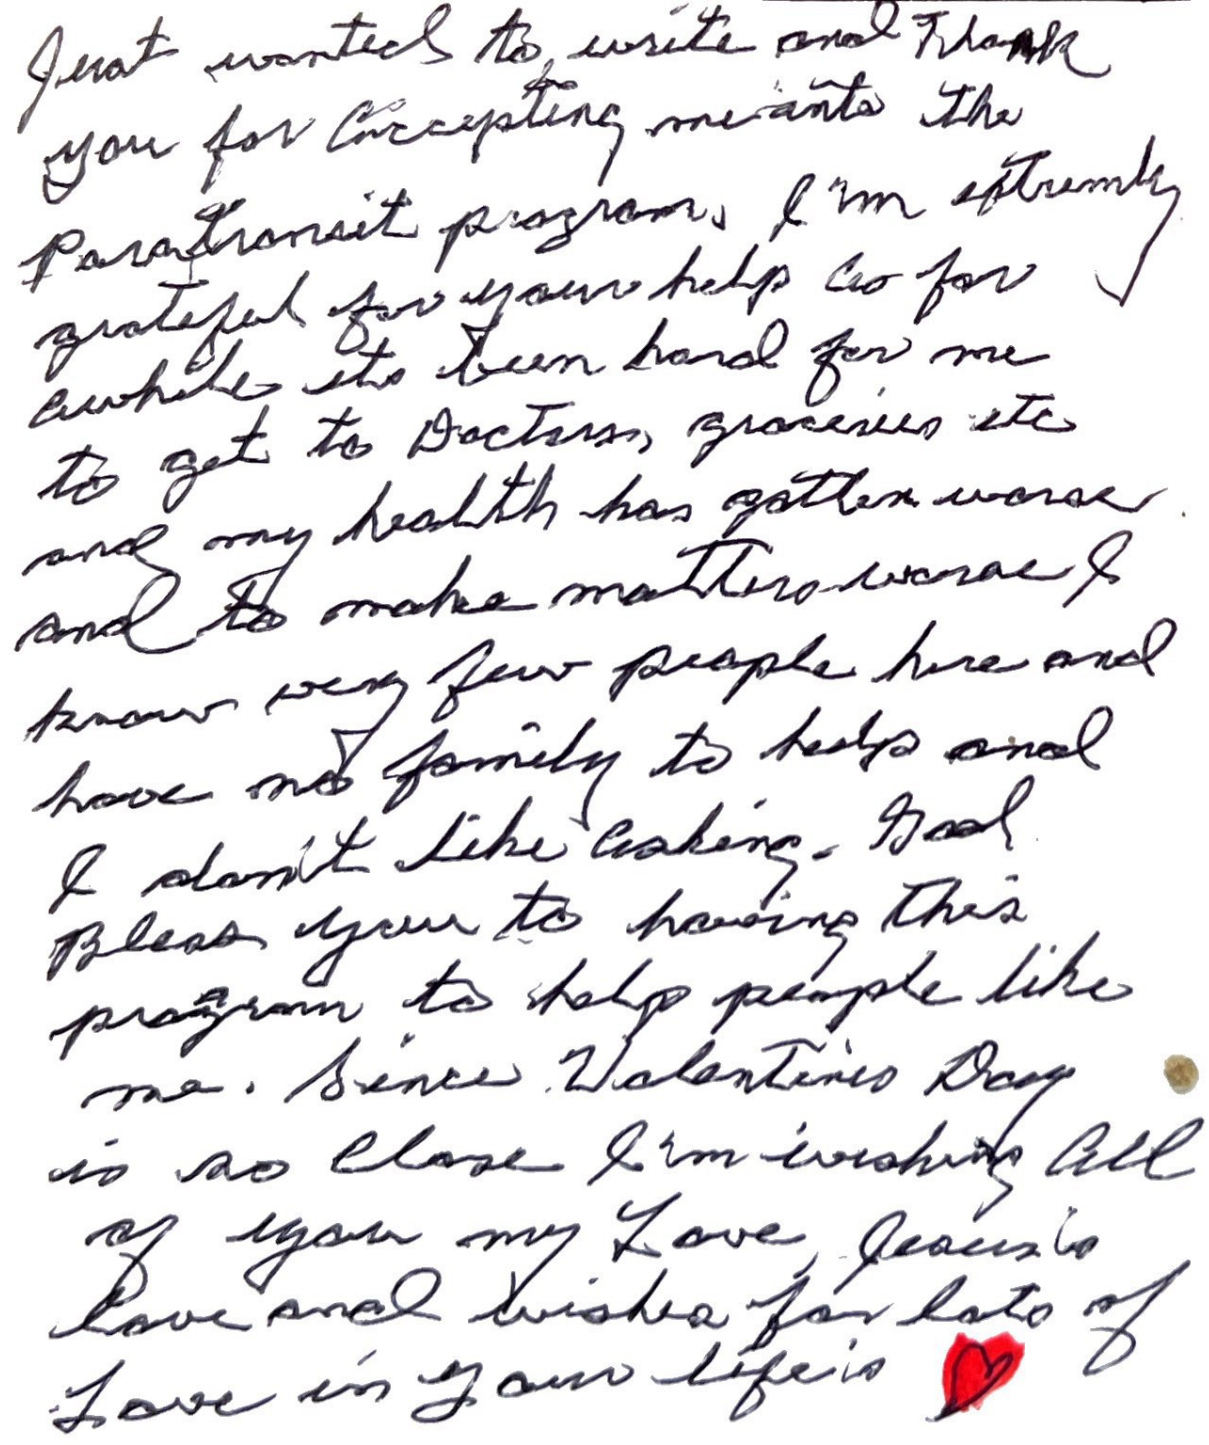 Just wanted to write and Thank
you for Accepting me into the
Paratransit program, I'm extremly
grateful for your help as for
awhile its been hard for me
to get to Doctors, groceries etc
and my health has gotten worse
and to make matters worse I
know very few people here and
have no family to help and
I don't like asking. God
Bless you to having this
program to help people like
me. Since Valentines Day
is so Close I'm wishing All
of you my Love, Jesus's
Love and wishes for lots of
Love in your life's